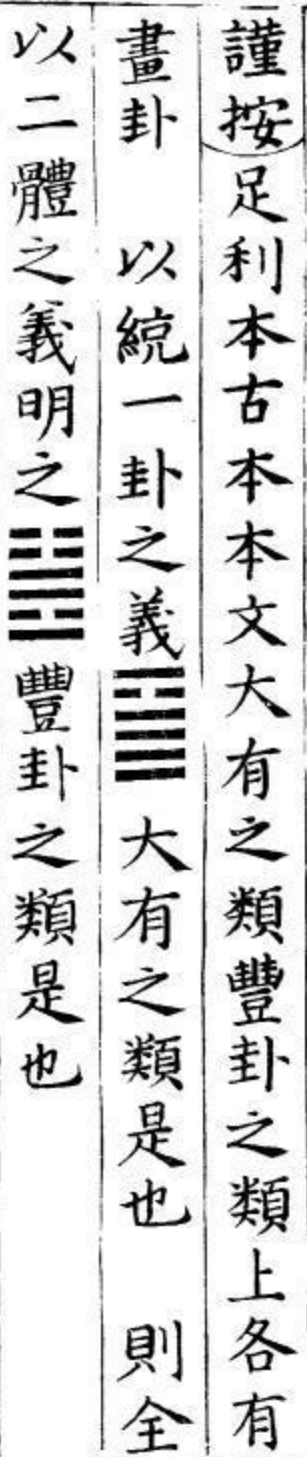 謹按足利本古本本文大有之類豐卦之類上各有
畫卦　以統一卦之義䷍大有之類是也　則全
以二體之義明之䷶豐卦之類是也